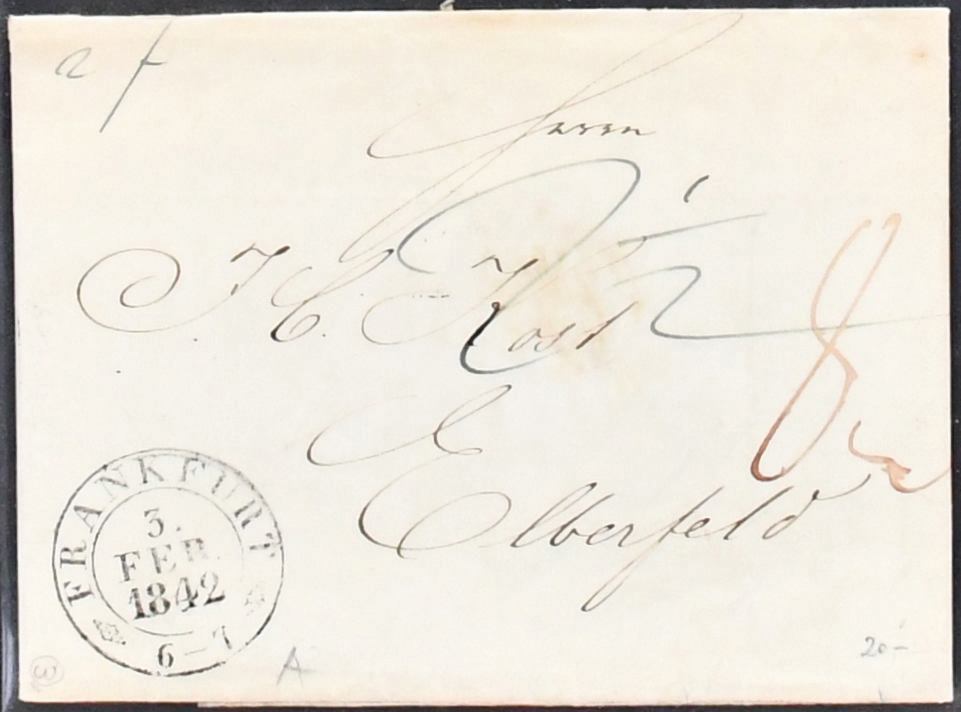 Herrn
J. C. Kost
Elberfeld
8
FRANKFURT
3.
FEB.
1842
6-7
A
20-
3